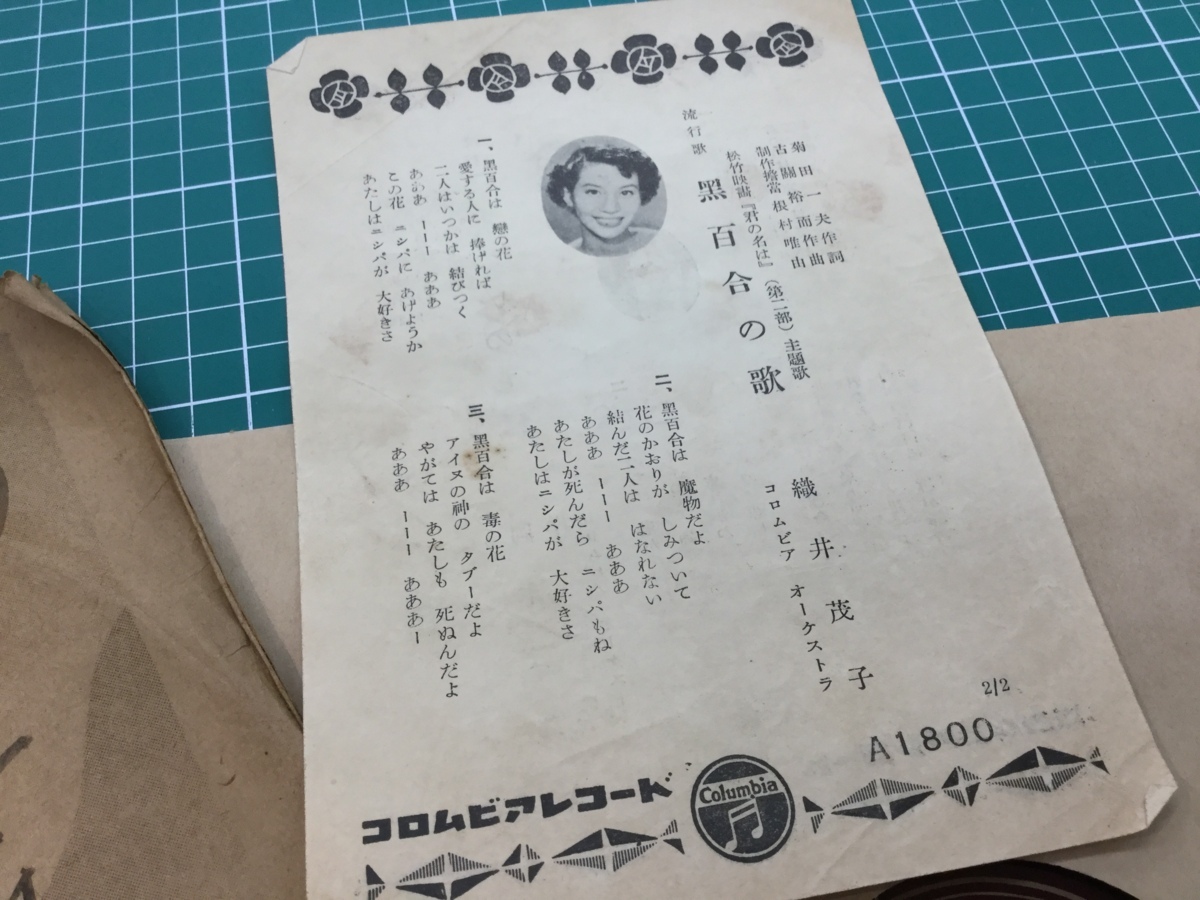 菊田一夫作詞
古關裕而作曲
制作擔當 根村唯由
松竹映畫『君の名は』(第二部)主題歌
流行歌
黑百合の歌
織井茂子
コロムビア オーケストラ
一、黑百合は 戀の花
愛する人に 捧げれば
二人はいつかは 結びつく
あああ ーーー あああ
この花 ニシパに あげようか
あたしはニシパが 大好きさ
二、黑百合は 魔物だよ
花のかおりが しみついて
結んだ二人は はなれない
あああ ーーー あああ
あたしが死んだら ニシパもね
あたしはニシパが 大好きさ
三、黑百合は 毒の花
アイヌの神の タブーだよ
やがては あたしも 死ぬんだよ
あああ ーーー あああー
2/2
A1800
コロムビアレコード
Columbia